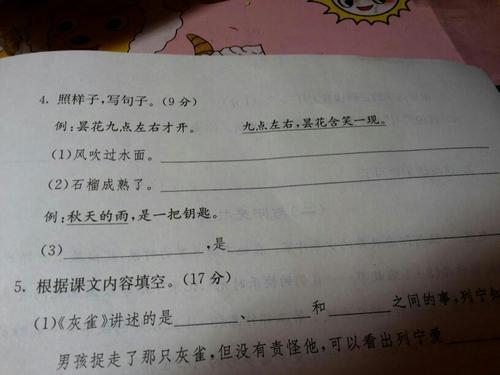 4. 照样子,写句子。(9分)
例:昙花九点左右才开。 九点左右,昙花含笑一现。
(1)风吹过水面。
(2)石榴成熟了。
例:秋天的雨,是一把钥匙。
(3) ,是
5. 根据课文内容填空。(17分)
(1)《灰雀》讲述的是 、 和 之间的事,列宁知
男孩捉走了那只灰雀,但没有责怪他,可以看出列宁爱